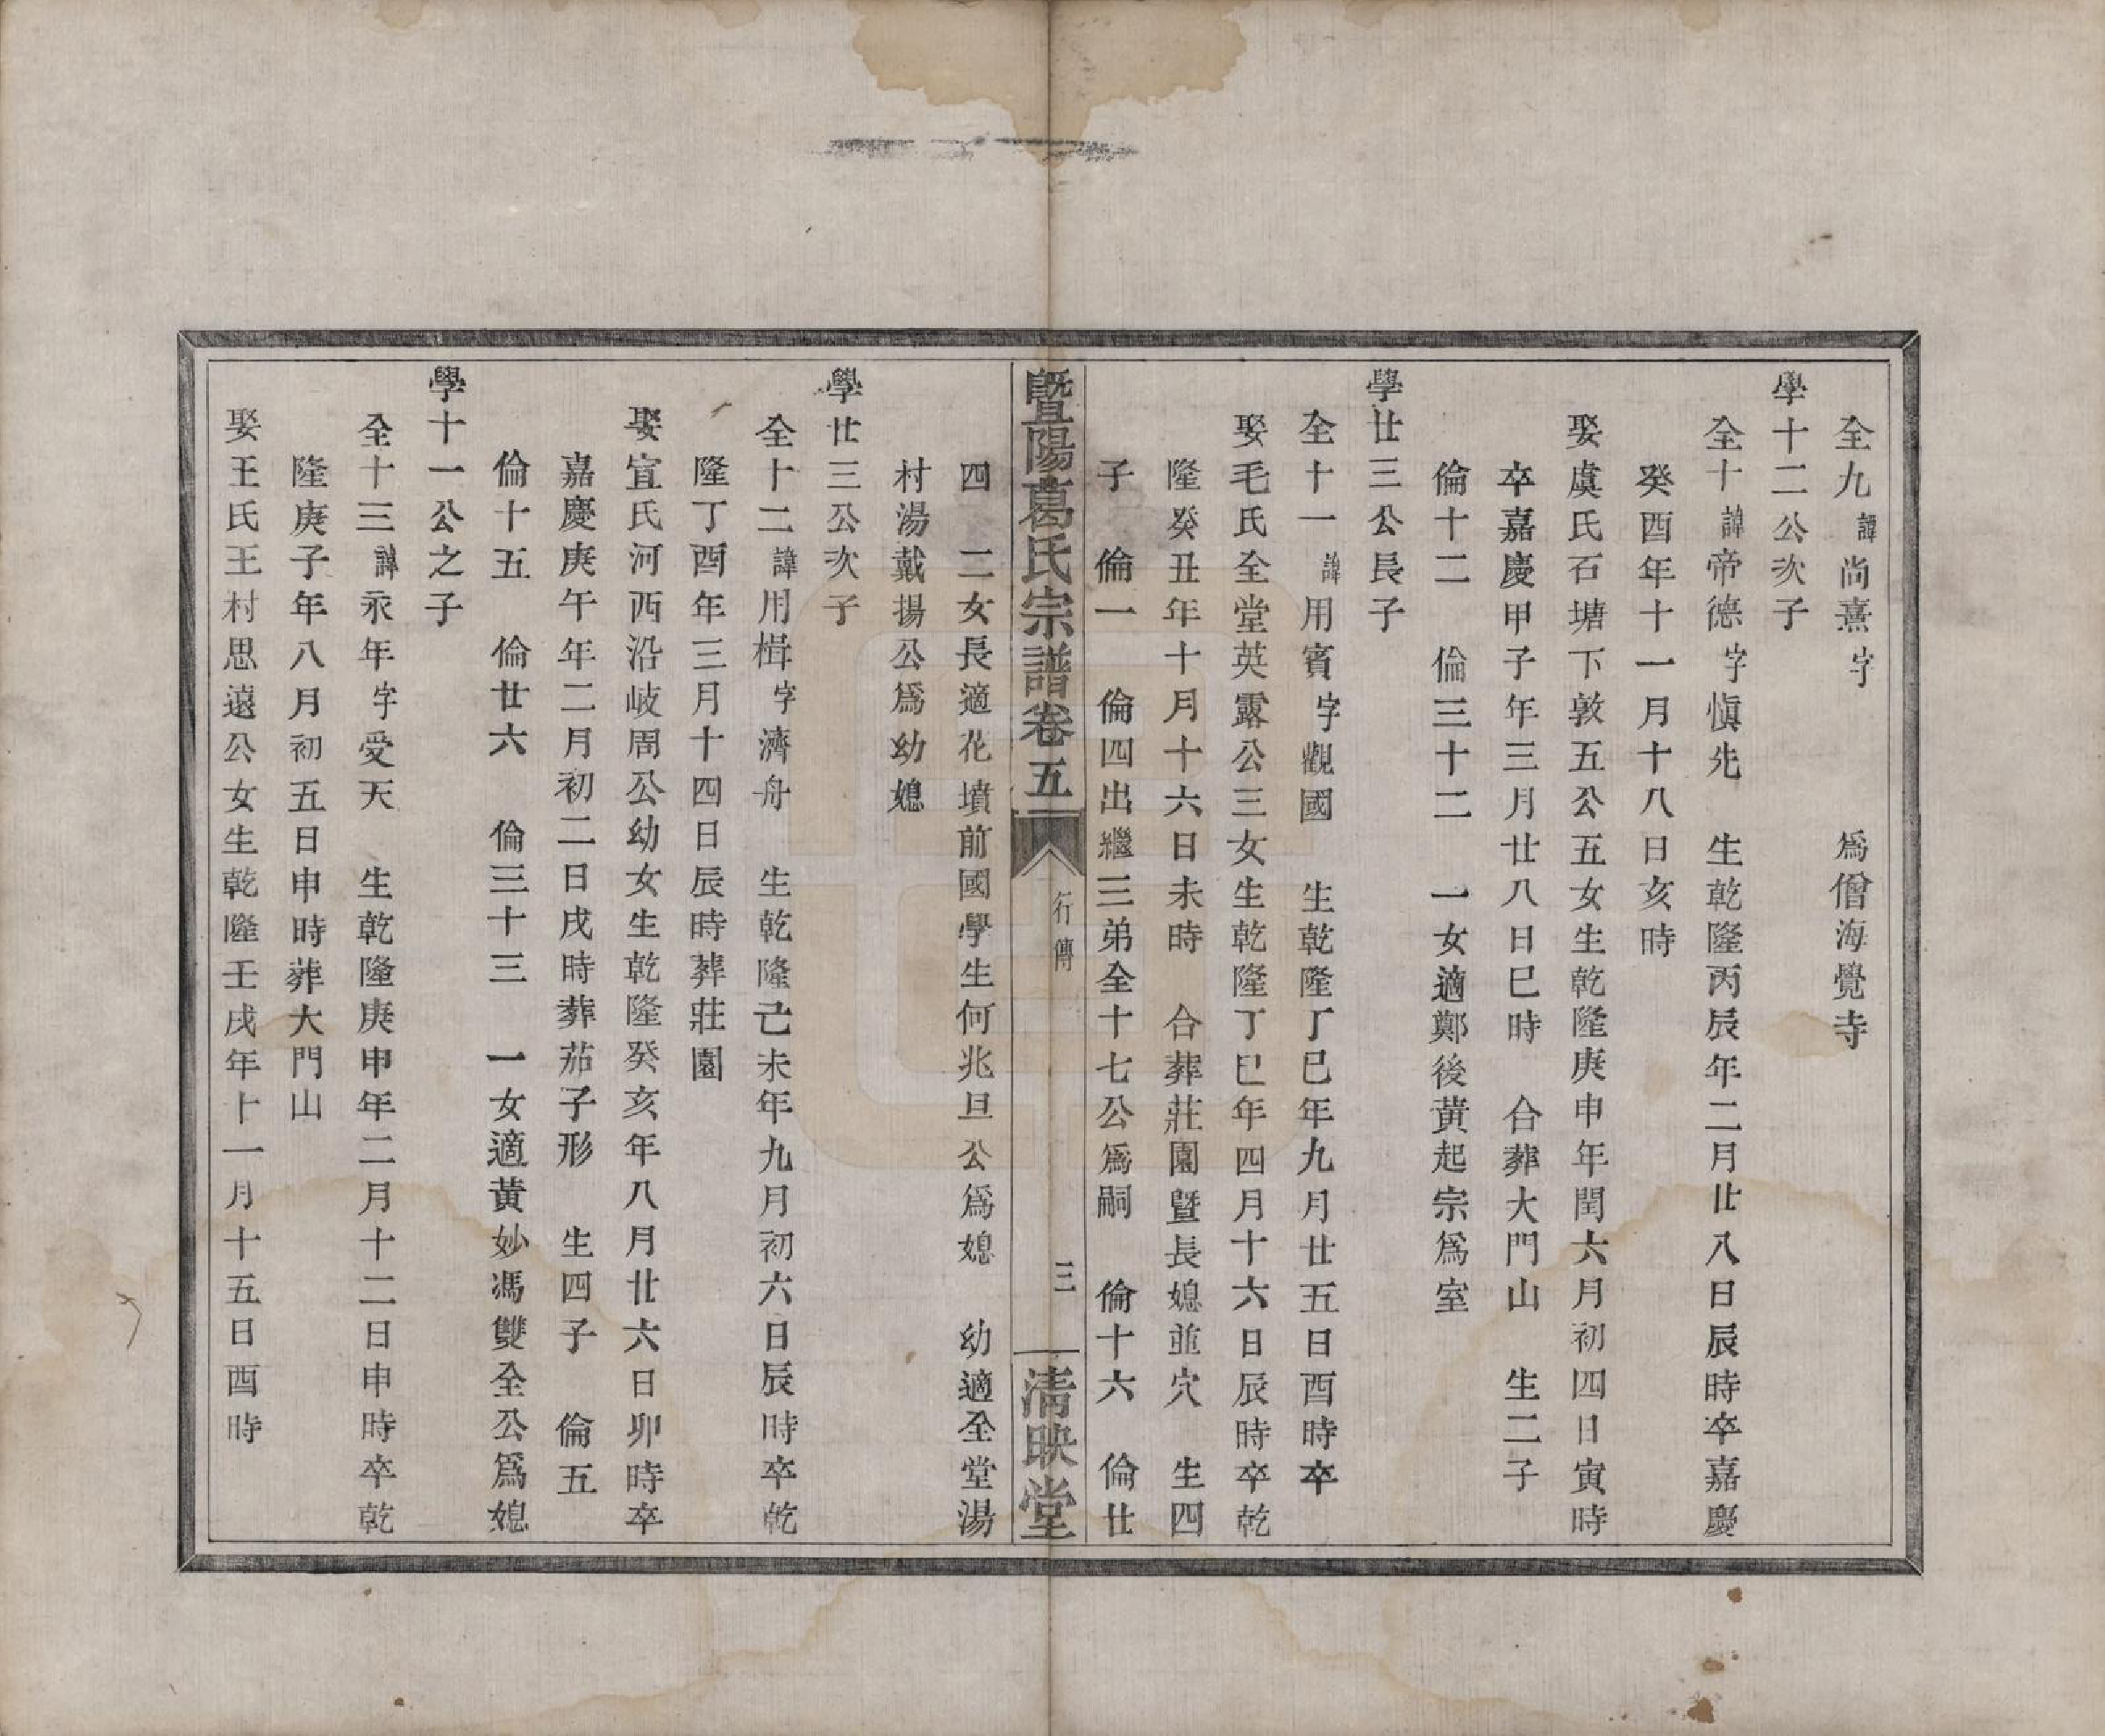 全九諱尚熹字　為僧海覺寺
學十二公次子
全十諱帝德字愼先　生乾隆丙辰年二月廿八日辰時卒嘉慶
癸酉年十一月十八日亥時
娶虞氏石塘下敦五公五女生乾隆庚申年閏六月初四日寅時
卒嘉慶甲子年三月廿八日巳時　合葬大門山　生二子
倫十二　倫三十二　一女適鄭後黃起宗為室
學廿三公長子
全十一諱用賓字觀國　生乾隆丁巳年九月廿五日酉時卒
娶毛氏全堂英露公三女生乾隆丁巳年四月十六日辰時卒乾
隆癸丑年十月十六日未時　合葬莊園暨長媳並穴　生四
子　倫一　倫四出繼三弟全十七公為嗣　倫十六　倫廿
暨陽葛氏宗譜卷五　行傳　三　清映堂
四　二女長適花墳前國學生何兆旦公為媳　幼適全堂湯
村湯戴揚公為幼媳
學廿三公次子
全十二諱用楫字濟舟　生乾隆己未年九月初六日辰時卒乾
隆丁酉年三月十四日辰時葬莊園
娶宣氏河西沿岐周公幼女生乾隆癸亥年八月廿六日卯時卒
嘉慶庚午年二月初二日戌時葬茄子形　生四子　倫五
倫十五　倫廿六　倫三十三　一女適黃妙馮雙全公為媳
學十一公之子
全十三諱永年字受天　生乾隆庚申年二月十二日申時卒乾
隆庚子年八月初五日申時葬大門山
娶王氏王村思遠公女生乾隆壬戌年十一月十五日酉時